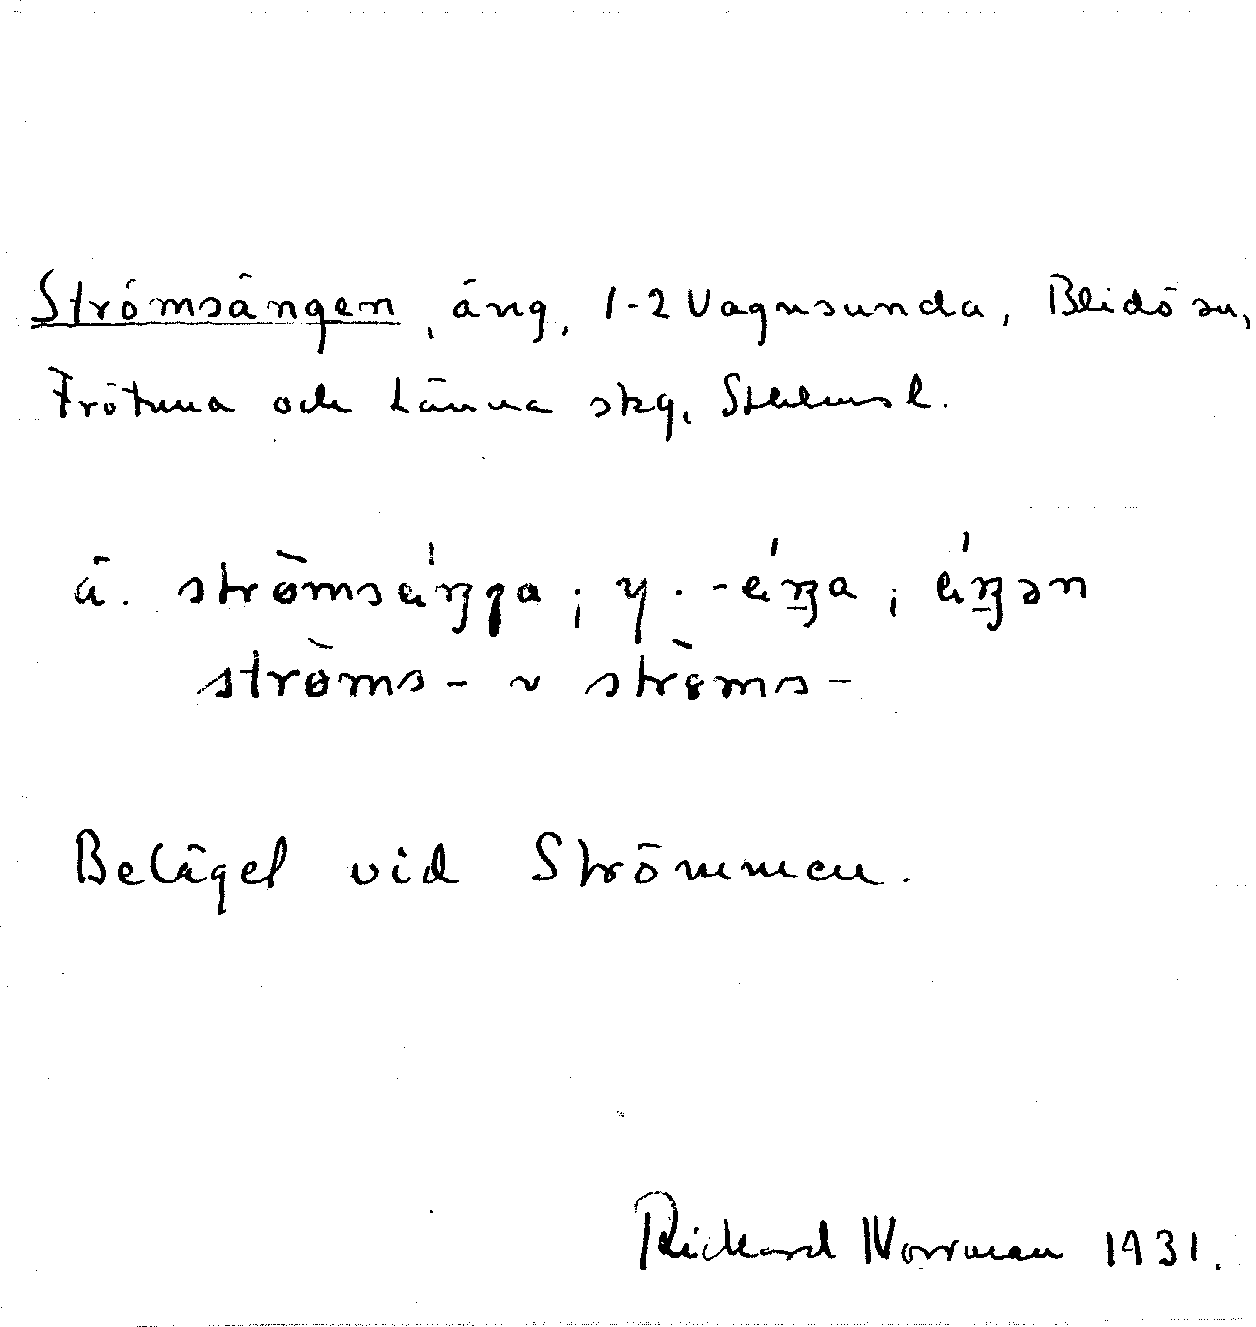 Strömsängen, äng, 1-2 Vagnsunda, Blidö sn,
Frötuna och Länna skg, Sthlms l.
ä. strömsäŋŋa; y. -éŋa; éŋən
ströms- ~ ströms-
Beläget vid Strömmen.
Rickard Norrman 1931.